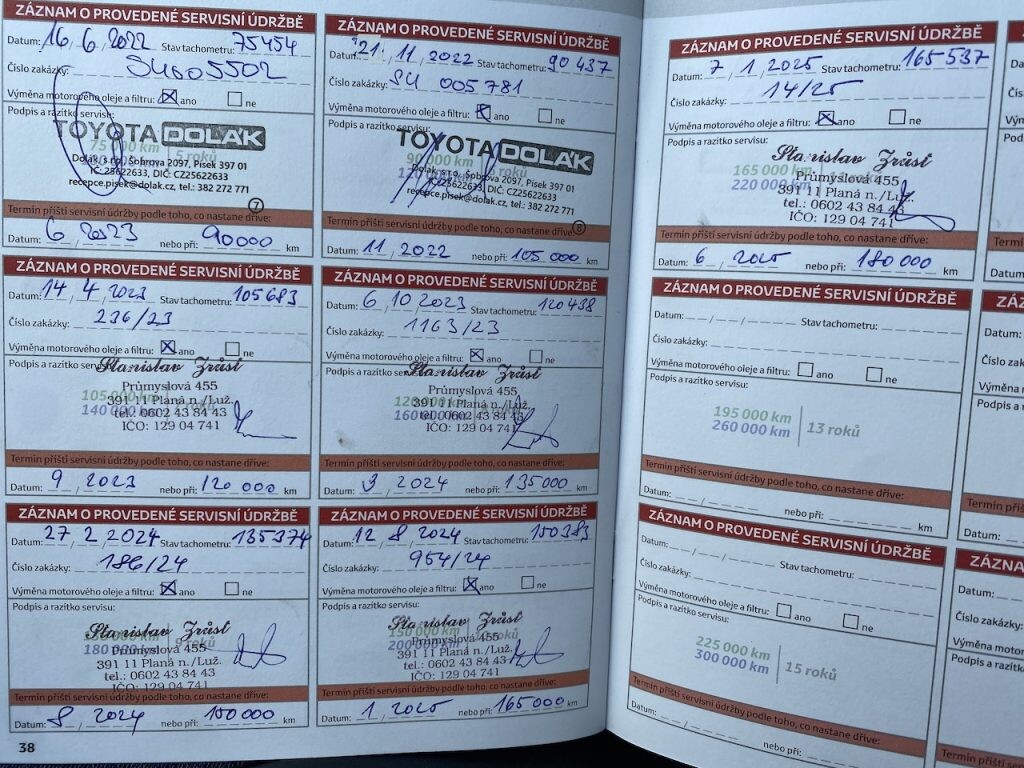 ZÁZNAM O PROVEDENÉ SERVISNÍ ÚDRŽBĚ
Datum: 16 / 6 / 2022 Stav tachometru: 75454
Číslo zakázky: SU005502
Výměna motorového oleje a filtru: ☒ ano ☐ ne
Podpis a razítko servisu:
TOYOTA DOLÁK
75 000 km
5 roků
Dolák, s.r.o., Šobrova 2097, Písek 397 01
IČ: 25622633, DIČ: CZ25622633
recepce.pisek@dolak.cz, tel.: 382 272 771
7
Termín příští servisní údržby podle toho, co nastane dříve:
Datum: 6 / 2023 nebo při: 90000 km
ZÁZNAM O PROVEDENÉ SERVISNÍ ÚDRŽBĚ
Datum: 21. / 11 / 2022 Stav tachometru: 90 437
Číslo zakázky: SU 005781
Výměna motorového oleje a filtru: ☒ ano ☐ ne
Podpis a razítko servisu:
TOYOTA DOLÁK
90 000 km
Dolák, s.r.o., Šobrova 2097, Písek 397 01
IČ: 25622633, DIČ: CZ25622633
recepce.pisek@dolak.cz, tel.: 382 272 771
8
Termín příští servisní údržby podle toho, co nastane dříve:
Datum: 11 / 2022 nebo při: 105 000 km
ZÁZNAM O PROVEDENÉ SERVISNÍ ÚDRŽBĚ
Datum: 14 / 4 / 2023 Stav tachometru: 105683
Číslo zakázky: 236/23
Výměna motorového oleje a filtru: ☒ ano ☐ ne
Podpis a razítko servisu:
Stanislav Zrůst
Průmyslová 455
391 11 Planá n./Luž.
tel.: 0602 43 84 43
IČO: 129 04 741
Termín příští servisní údržby podle toho, co nastane dříve:
Datum: 9 / 2023 nebo při: 120 000 km
ZÁZNAM O PROVEDENÉ SERVISNÍ ÚDRŽBĚ
Datum: 6 / 10 / 2023 Stav tachometru: 120438
Číslo zakázky: 1163/23
Výměna motorového oleje a filtru: ☒ ano ☐ ne
Podpis a razítko servisu:
Stanislav Zrůst
Průmyslová 455
391 11 Planá n./Luž.
tel.: 0602 43 84 43
IČO: 129 04 741
Termín příští servisní údržby podle toho, co nastane dříve:
Datum: 3 / 2024 nebo při: 135000 km
ZÁZNAM O PROVEDENÉ SERVISNÍ ÚDRŽBĚ
Datum: 27 / 2 / 2024 Stav tachometru: 135374
Číslo zakázky: 186/24
Výměna motorového oleje a filtru: ☒ ano ☐ ne
Podpis a razítko servisu:
Stanislav Zrůst
Průmyslová 455
391 11 Planá n./Luž.
tel.: 0602 43 84 43
IČO: 129 04 741
Termín příští servisní údržby podle toho, co nastane dříve:
Datum: 8 / 2024 nebo při: 150000 km
ZÁZNAM O PROVEDENÉ SERVISNÍ ÚDRŽBĚ
Datum: 12 / 8 / 2024 Stav tachometru: 150383
Číslo zakázky: 954/24
Výměna motorového oleje a filtru: ☒ ano ☐ ne
Podpis a razítko servisu:
Stanislav Zrůst
150 000 km
200 000 km
Průmyslová 455
391 11 Planá n./Luž.
tel.: 0602 43 84 43
IČO: 129 04 741
Termín příští servisní údržby podle toho, co nastane dříve:
Datum: 1 / 2025 nebo při: 165000 km
38
ZÁZNAM O PROVEDENÉ SERVISNÍ ÚDRŽBĚ
Datum: 7 / 1 / 2025 Stav tachometru: 165537
Číslo zakázky: 14/25
Výměna motorového oleje a filtru: ☒ ano ☐ ne
Podpis a razítko servisu:
Stanislav Zrůst
165 000 km
220 000 km
Průmyslová 455
391 11 Planá n./Luž.
tel.: 0602 43 84 43
IČO: 129 04 741
Termín příští servisní údržby podle toho, co nastane dříve:
Datum: 6 / 2025 nebo při: 180 000 km
ZÁZNAM O PROVEDENÉ SERVISNÍ ÚDRŽBĚ
Datum: Stav tachometru:
Číslo zakázky:
Výměna motorového oleje a filtru: ☐ ano ☐ ne
Podpis a razítko servisu:
195 000 km
260 000 km
13 roků
Termín příští servisní údržby podle toho, co nastane dříve:
Datum: nebo při: km
ZÁZNAM O PROVEDENÉ SERVISNÍ ÚDRŽBĚ
Datum: Stav tachometru:
Číslo zakázky:
Výměna motorového oleje a filtru: ☐ ano ☐ ne
Podpis a razítko servisu:
225 000 km
300 000 km
15 roků
Termín příští servisní údržby podle toho, co nastane dříve:
Datum: nebo při: